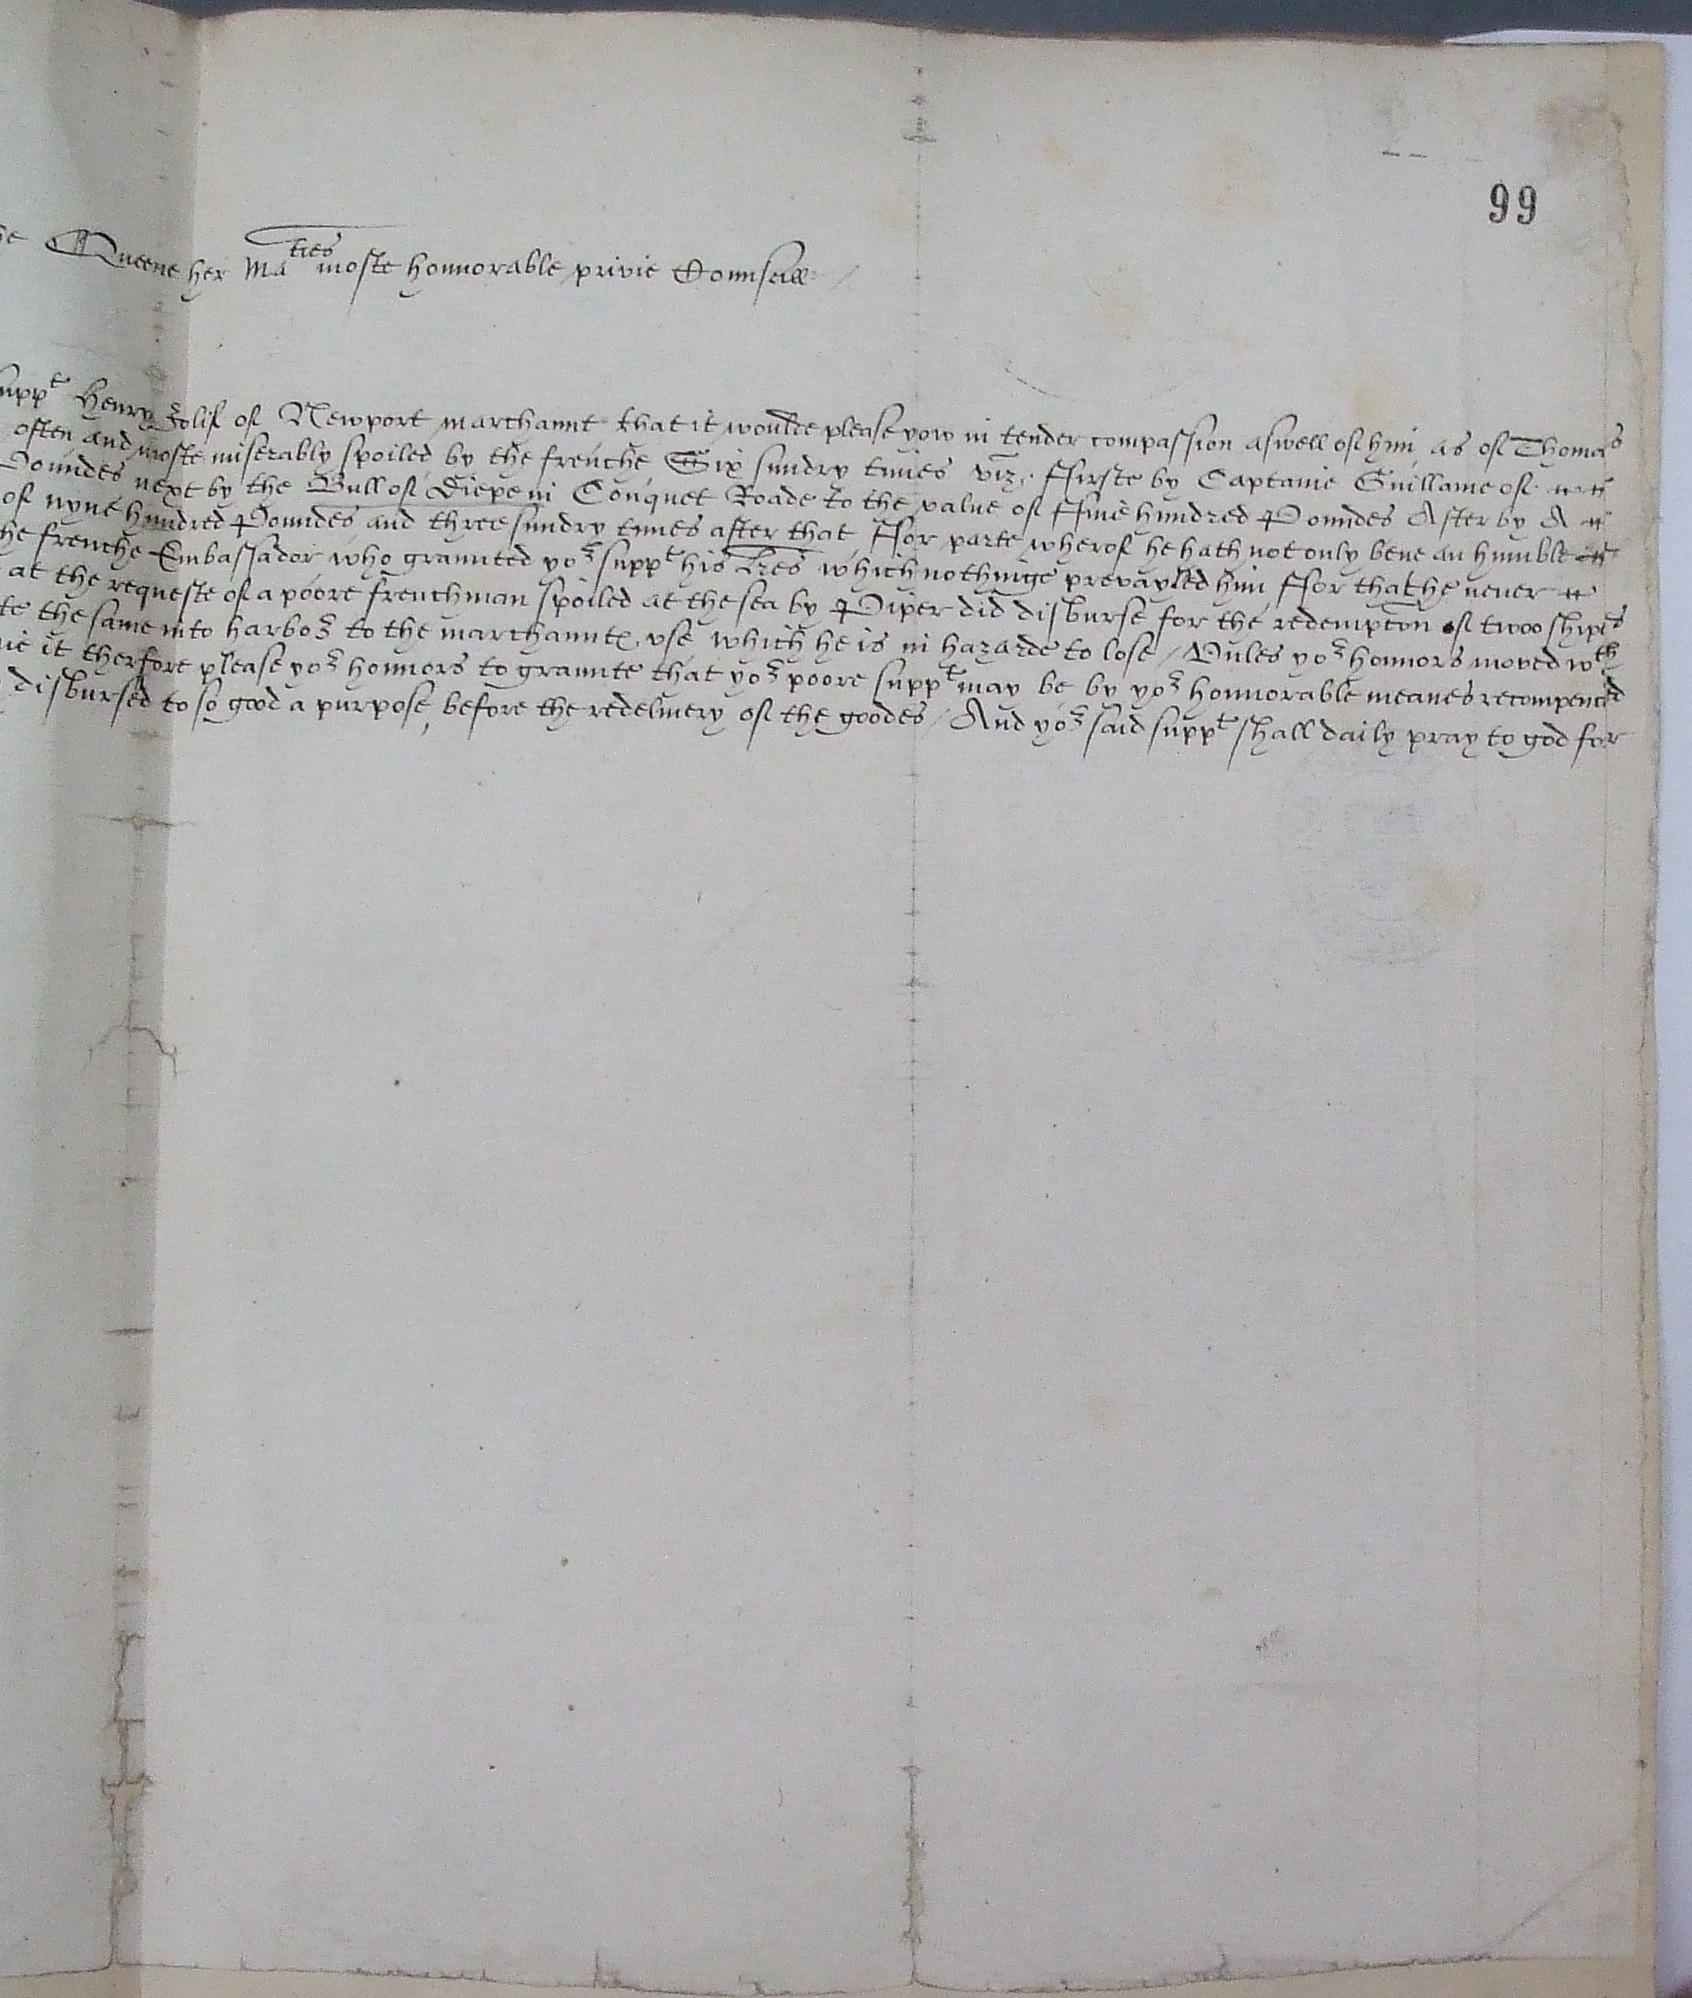 99
he Queene her Ma^ties moste honnorable privie Counsell
supp^t Henry Jolif of Newport marchannt that it woulde please yow in tender compassion aswell of him as of Thomas
often and moste miserably spoiled by the frenche Six sundry times viz. ffirste by Captaine Guillame of
Poundes next by the Bull of Diepe in Conquet Roade to the value of ffive hundred Poundes After by A
of nyne hundred Poundes and three sundry times after that ffor parte wherof he hath not only bene an humble
he frenche Embassador who graunted yo^r supp^t his lres which nothinge prevayled him ffor that he never
at the requeste of a poore frenchman spoiled at the sea by Piper did disburse for the redempton of twoo shipes
te the same into harbo^r to the marchauntes use which he is in hazarde to lose / Unles yo^r honnors moved w^th
it therfore please yo^r honnors to graunte that yo^r poore supp^t may be by yo^r honnorable meanes recompenced
disbursed to so good a purpose, before the redelivery of the goodes / And yo^r said supp^t shall daily pray to god for